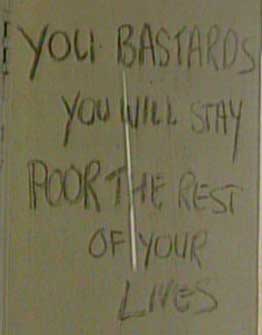 YOU BASTARDS
YOU WILL STAY
POOR THE REST
OF YOUR
LIVES